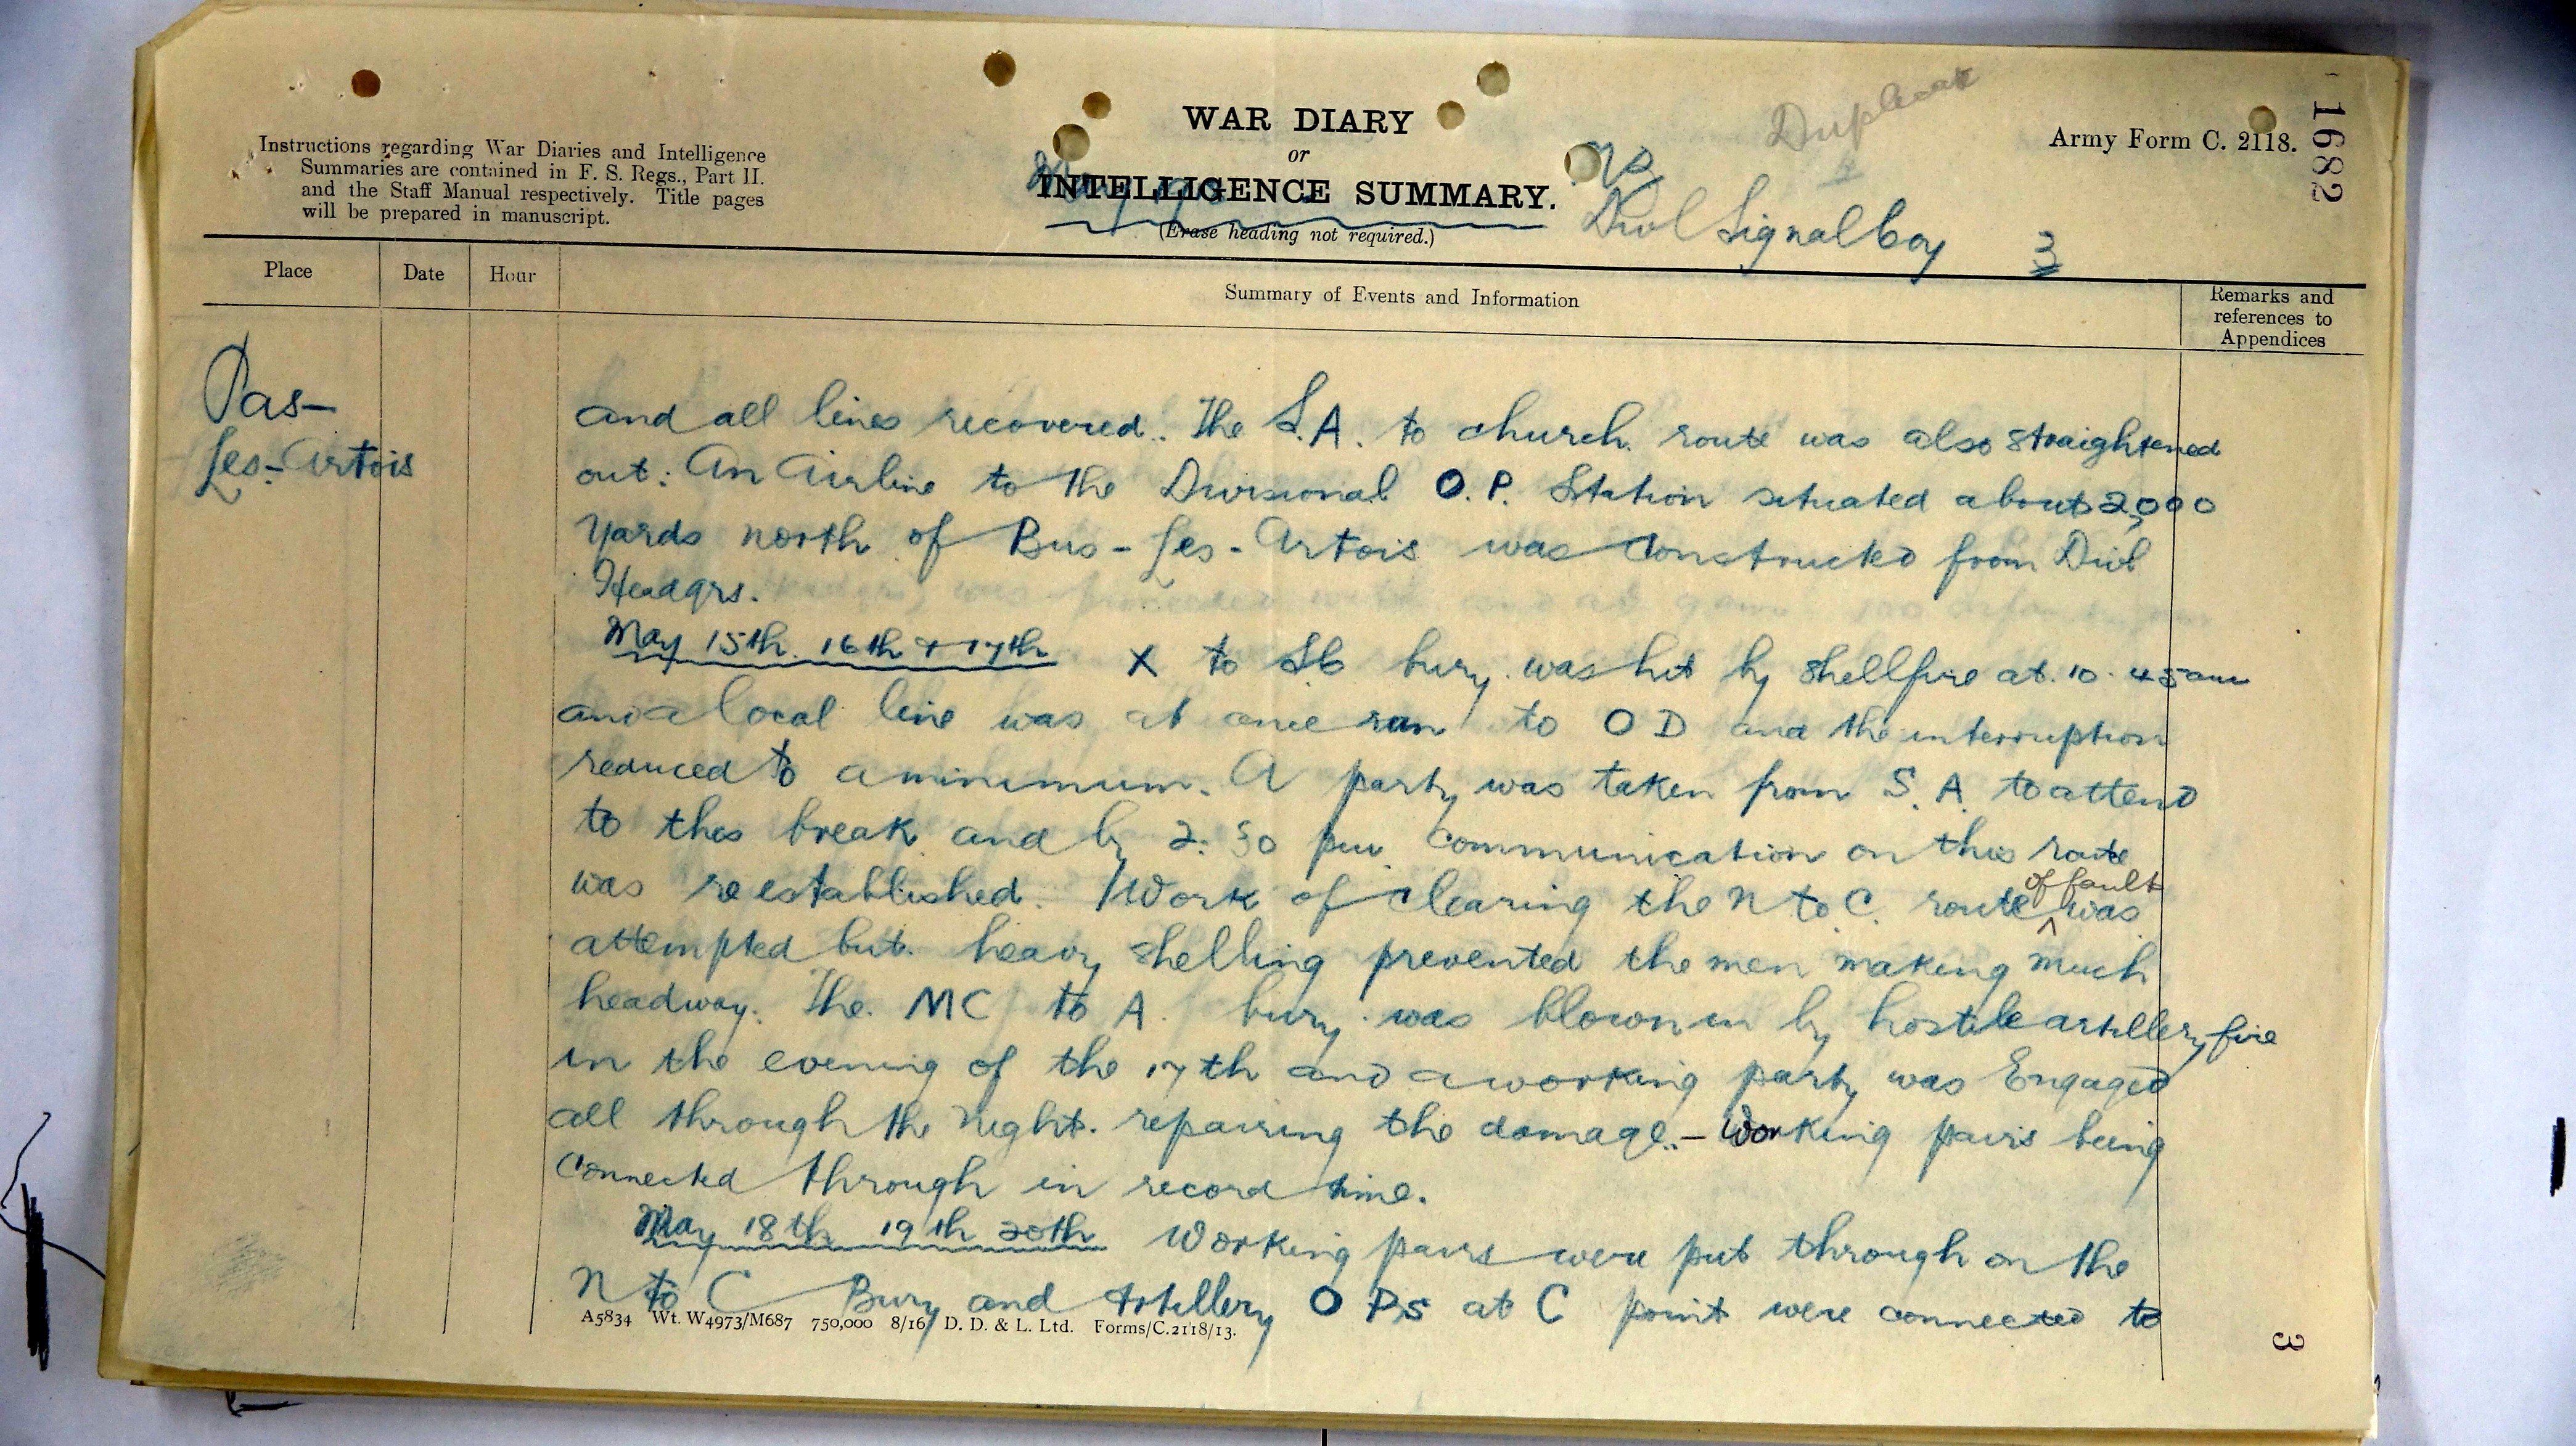 Duplicate
WAR DIARY
or
INTELLIGENCE SUMMARY.
(Erase heading not required.)
Instructions regarding War Diaries and Intelligence
Summaries are contained in F. S. Regs., Part II.
and the Staff Manual respectively. Title pages
will be prepared in manuscript.
Army Form C. 2118.
1682
NZ
Divl Signal Coy 3
Place
Date
Hour
Summary of Events and Information
Remarks and
references to
Appendices
Pas-
Les-Artois
and all lines recovered. The S.A. to church route was also straightened
out: An Airline to the Divisional O.P. Station situated about 2,000
yards north of Bus-Les-Artois was constructed from Divl
Headqrs.
May 15th. 16th & 17th X to S.C bury was hit by shellfire at 10.45 am
and a local line was at once ran to O D and the interruption
reduced to a minimum. A party was taken from S.A. to attend
to this break and by 2:30 pm communication on this route
was reestablished. Work of clearing the N to C. route of faults was
attempted but heavy shelling prevented the men making much
headway. The MC to A. bury was blown in by hostile artillery fire
in the evening of the 17th and a working party was Engaged
all through the Night. repairing the damage.- Working pairs being
connected through in record time.
May 18th 19th 20th Working pairs were put through on the
N to C Bury and Artillery O Ps at C point were connected to
A5834 Wt. W4973/M687 750,000 8/16 D. D. & L. Ltd. Forms/C.2118/13.
3